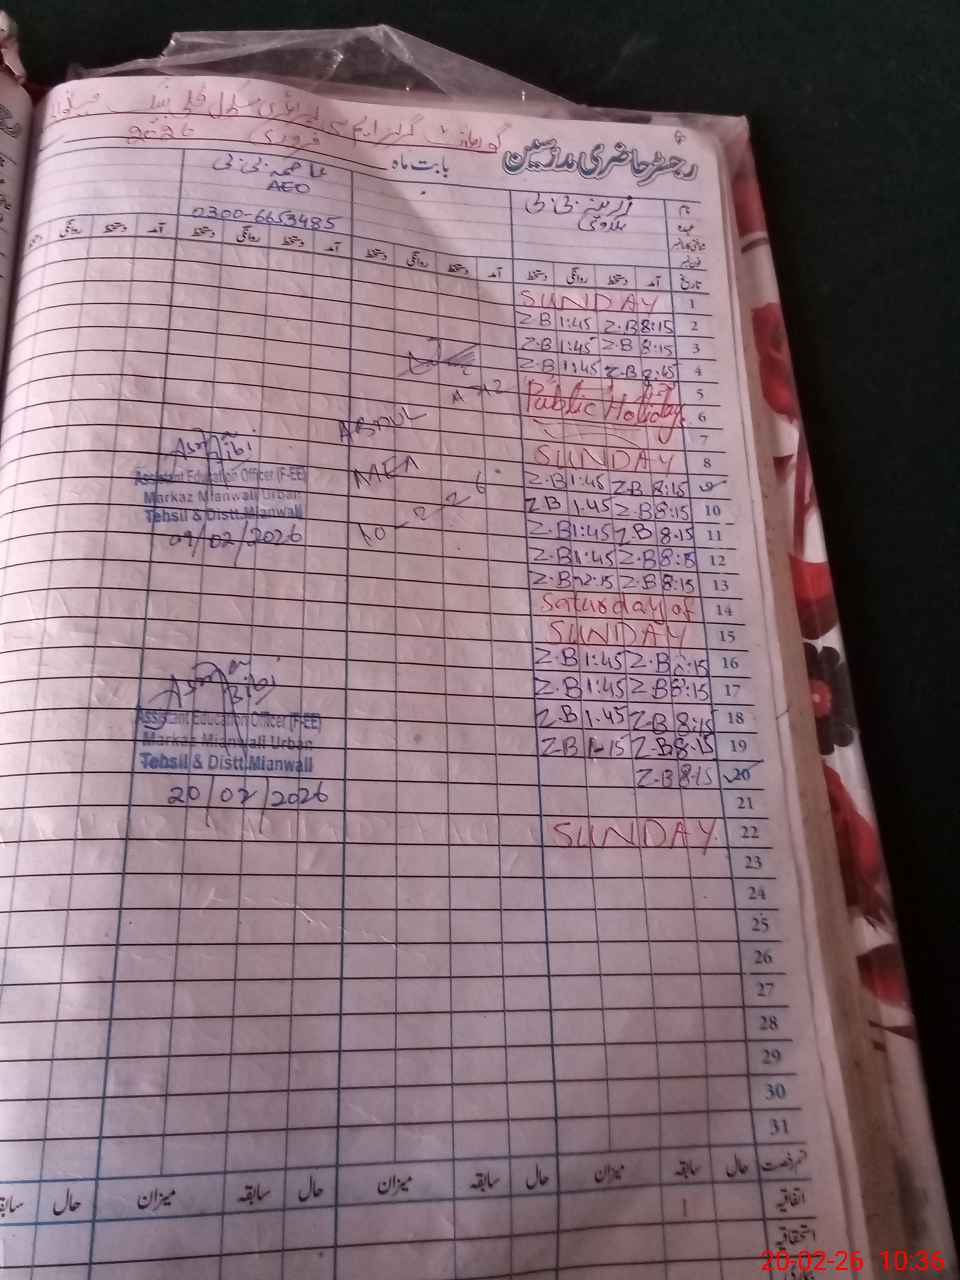 گورنمنٹ گرلز ایم سی پرائمری سکول
رجسٹر حاضری مدرسین
بابت ماہ
فروری
2026
زرینہ بی بی
عاصمہ بی بی
AEO
0300-6653485
تاریخ آمد دستخط روانگی دستخط آمد دستخط روانگی دستخط آمد دستخط روانگی دستخط آمد دستخط روانگی
1 SUNDAY
2 8:15 Z.B 1:45 Z-B
3 8:15 Z-B 1:45 Z-B
4 8:15 Z-B 1:45 Z-B
5 Public Holiday
6
7
8 SUNDAY
9 8:15 Z-B 1:45 Z-B
10 8:15 Z-B 1.45 Z B
11 8.15 Z-B 1:45 Z-B
12 8:15 Z-B 1:45 Z-B
13 8:15 Z-B 12-15 Z-B
14 Saturday of
15 SUNDAY
16 8:15 Z-B 1:45 Z-B
17 8:15 Z-B 1:45 Z-B
18 8:15 Z-B 1.45 Z-B
19 8.15 Z-B 1-15 Z-B
20 8:15 Z-B
21
22 SUNDAY
23
24
25
26
27
28
29
30
31
ABDUL
MEA
10-2-26
Asma Bibi
Assistant Education Officer (F-EE)
Markaz Mianwali Urban
Tehsil & Distt.Mianwali
09/02/2026
Asma Bibi
Assistant Education Officer (F-EE)
Markaz Mianwali Urban
Tehsil & Distt.Mianwali
20/02/2026
قسم رخصت حال سابقہ میزان حال سابقہ میزان حال سابقہ میزان حال سابقہ
اتفاقیہ 1
استحقاقیہ
20-02-26 10:36